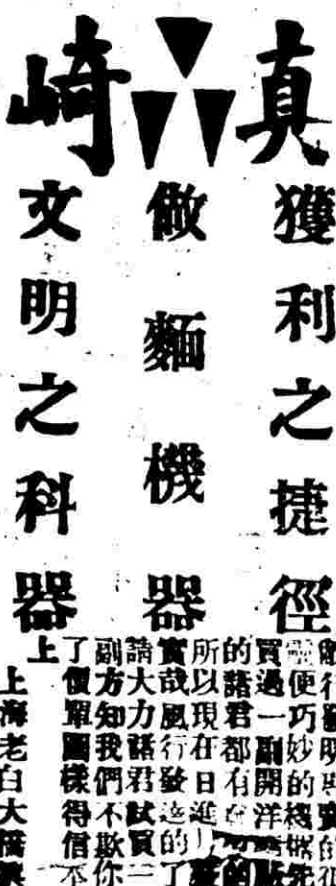 真崎
獲利之捷徑
做麵機器
文明之科器
靈便巧妙的機械
買過一副開洋
的諸君都有
所以現在日進
實哉風行發達的了
請大力諸君試買一
副方知我們不欺你
了價單圖樣得信
上
上海老白大橋